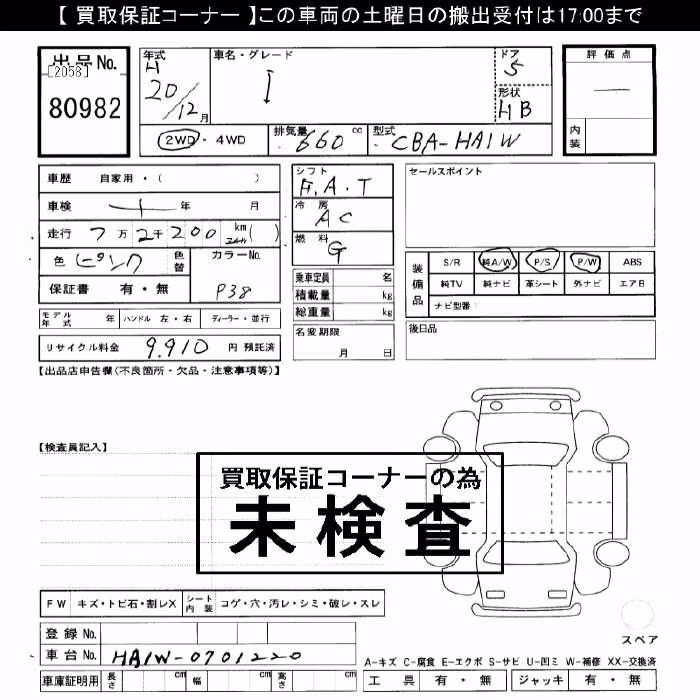 【 買取保証コーナー 】この車両の土曜日の搬出受付は17:00まで
出品No.
[2058]
80982
年式
H
20/12月
車名・グレード
i
ドア
5
形状
HB
2WD・4WD
排気量 660 cc
型式 CBA-HA1W
評価点
—
内装
車歴 自家用・( )
車検 年 月
走行 7万2千200 km( )
色 ピンク 色替
カラーNo.
P38
保証書 有・無
シフト
F.A.T
冷房
AC
燃料
G
乗車定員 名
積載量 kg
総重量 kg
名変期限
月 日
セールスポイント
装備品
S/R 純A/W P/S P/W ABS
純TV 純ナビ 革シート 外ナビ エアB
ナビ型番:
後日品
モデル年式 年 ハンドル 左・右 ディーラー・並行
リサイクル料金 9.910 円 預託済
【出品店申告欄(不良箇所・欠品・注意事項等)】
【検査員記入】
買取保証コーナーの為
未検査
FW キズ・トビ石・割レX シート内装 コゲ・穴・汚レ・シミ・破レ・スレ
スペア
登録No.
車台No. HA1W-0701220
車庫証明用 長さ cm 幅 cm 高さ cm
A-キズ C-腐食 E-エクボ S-サビ U-凹ミ W-補修 XX-交換済
工具 有・無 ジャッキ 有・無